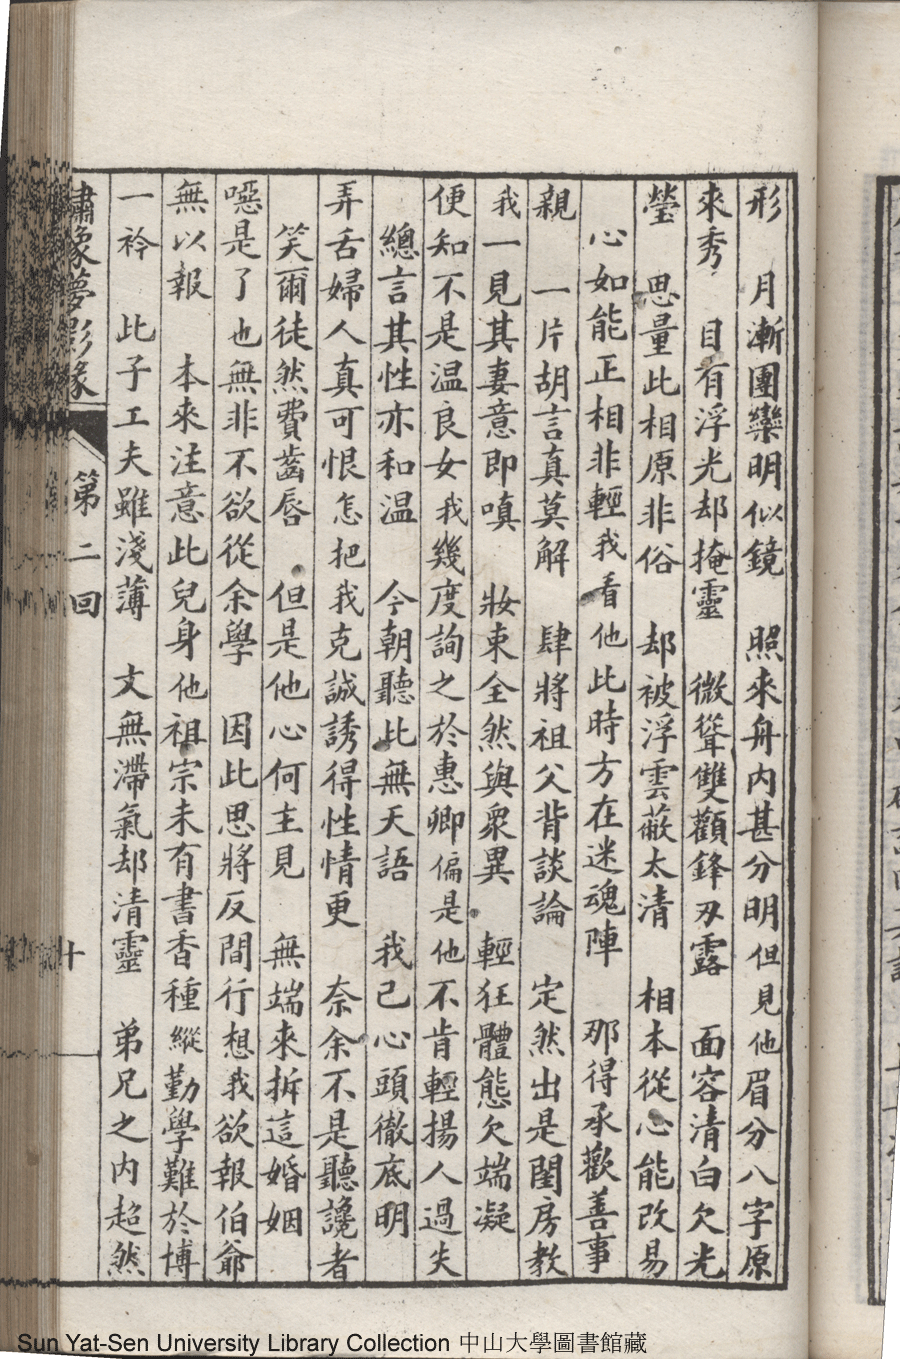 形　月漸團欒明似鏡　照來舟內甚分明但見他眉分八字原
來秀　目有浮光却掩靈　微聳雙顴鋒刃露　面容清白欠光
瑩　思量此相原非俗　却被浮雲蔽太清　相本從心能改易
心如能正相非輕我看他此時方在迷魂陣　那得承歡善事
親　一片胡言真莫解　肆將祖父背談論　定然出是閨房教
我一見其妻意即嗔　妝束全然與衆異　輕狂體態欠端凝
便知不是温良女我幾度詢之於惠卿偏是他不肯輕揚人過失
總言其性亦和温　今朝聽此無天語　我已心頭徹底明
弄舌婦人真可恨怎把我克誠誘得性情更　奈余不是聽讒者
笑爾徒然費齒唇　但是他心何主見　無端來拆這婚姻
噁是了也無非不欲從余學　因此思將反間行想我欲報伯爺
無以報　本來注意此兒身他祖宗未有書香種縱勤學難於博
一衿　此子工夫雖淺薄　文無滯氣却清靈　弟兄之內超然
繡像夢影緣　第二回　十
Sun Yat-Sen University Library Collection 中山大學圖書館藏